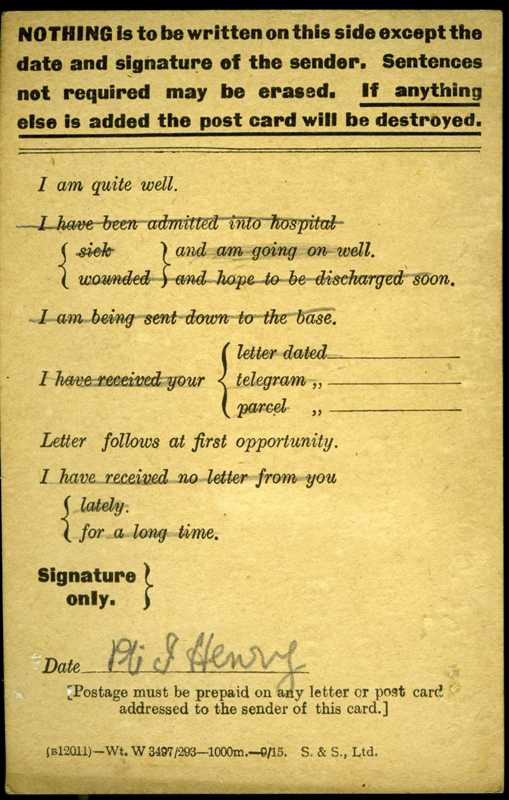 NOTHING is to be written on this side except the
date and signature of the sender. Sentences
not required may be erased. If anything
else is added the post card will be destroyed.
I am quite well.
I have been admitted into hospital
sick } and am going on well.
wounded } and hope to be discharged soon.
I am being sent down to the base.
letter dated
I have received your { telegram ,,
parcel ,,
Letter follows at first opportunity.
I have received no letter from you
lately.
for a long time.
Signature
only.
Date Henry
[Postage must be prepaid on any letter or post card
addressed to the sender of this card.]
(B12011)—Wt. W 3497/293—1000m.—9/15. S. & S., Ltd.